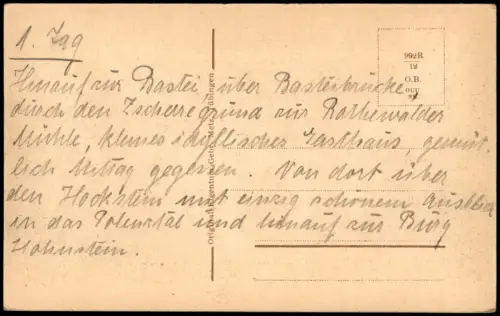 1. Tag
Hinauf zur Bastei über Basteibrücke,
durch den Zscherregrund zur Rathewalder
Mühle, kleines idyllisches Gasthaus, gemüt-
lich Mittag gegessen. Von dort über
den Hockstein mit einzig schönem Ausblick
in das Polenztal und hinauf zur Burg
Hohnstein.
992R
12
O.B.